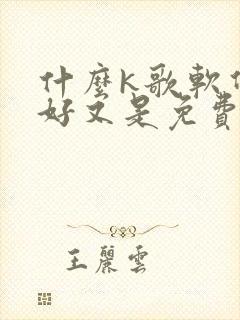 什麼K歌軟
好又是免費
王麗雲